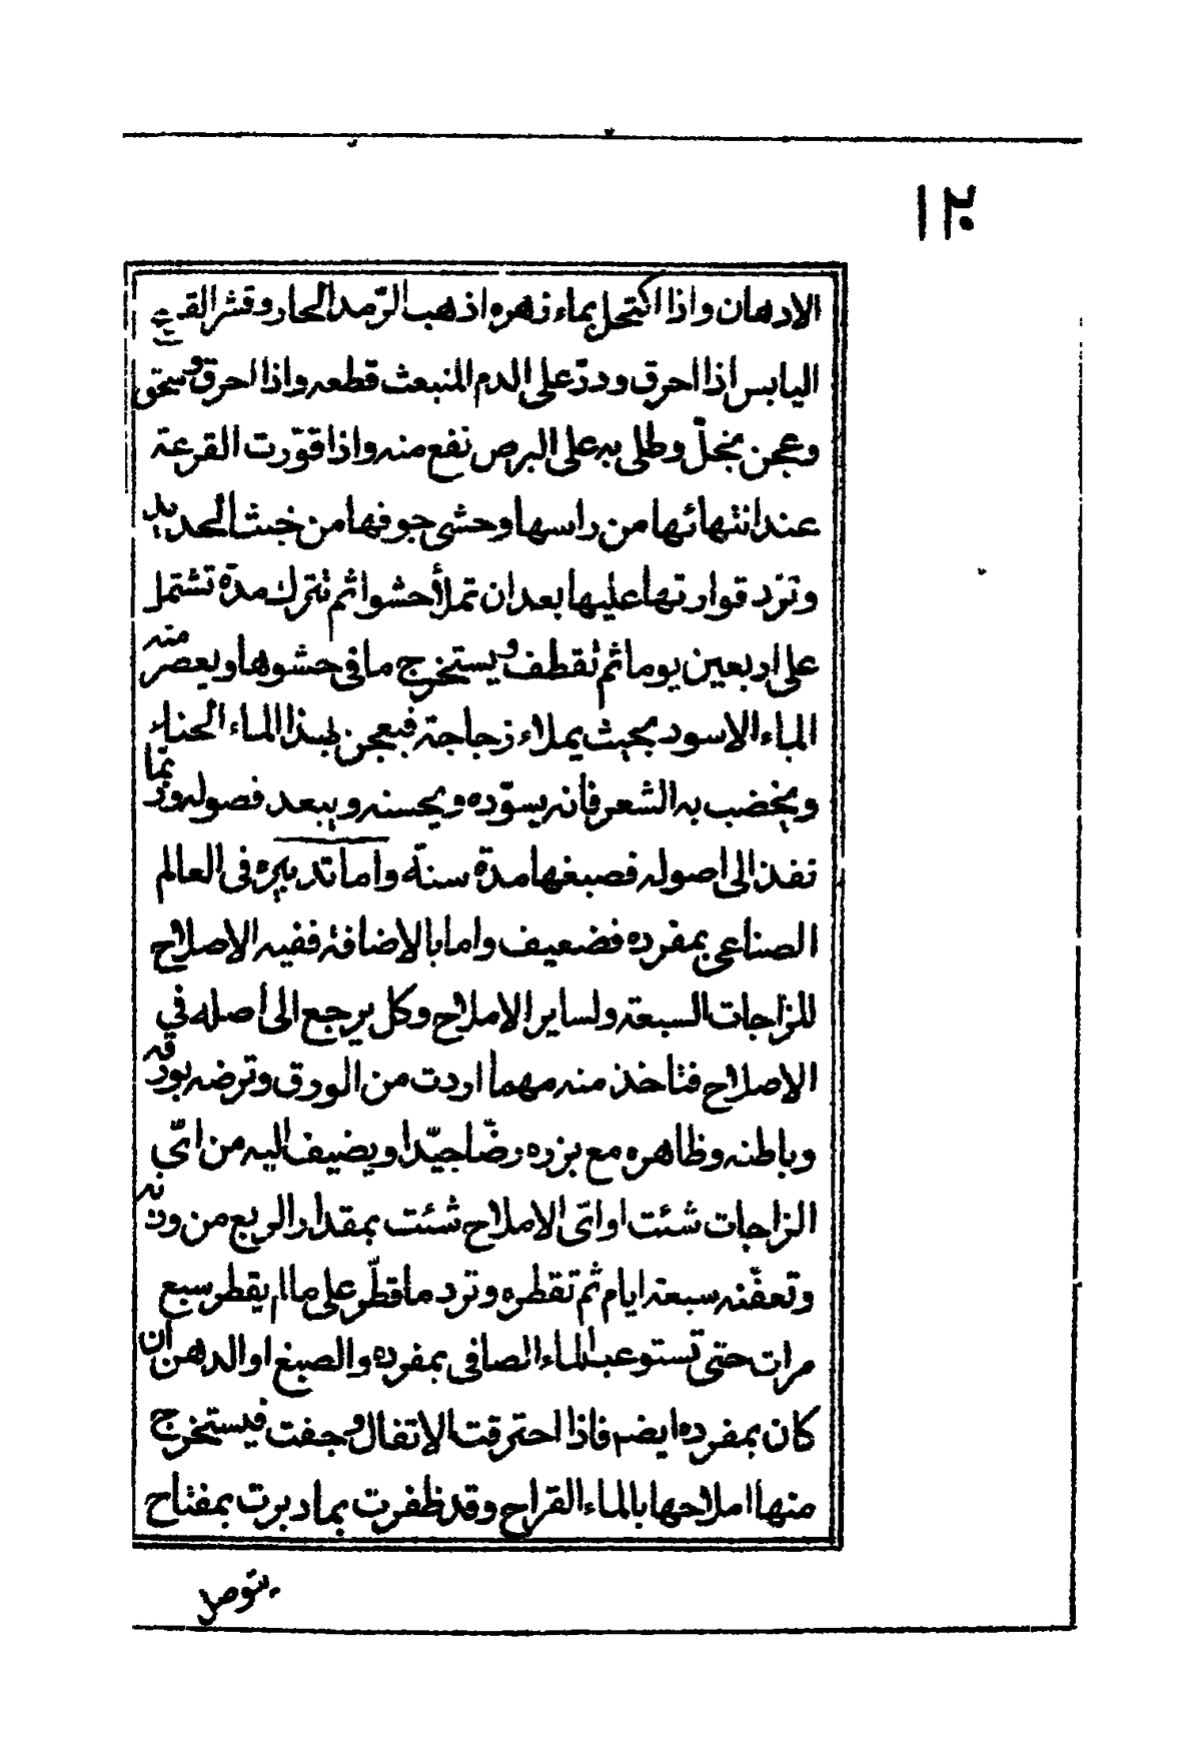 الادهان واذا اكتحل بماء زهره اذهب الرّمد الحار وقشر القرع
اليابس اذا احرق وذرّ على الدم المنبعث قطعه واذا احرق وسحق
وعجن بخلّ وطلى به على البرص نفع منه واذا قوّرت القرعة
عند انتهائها من راسها وحشى جوفها من خبث الحديد
وتردّ قوارتها عليها بعد ان تملأ حشوا ثم تترك مدّة تشتمل
على اربعين يوما ثم تقطف ويستخرج ما فى حشوها ويعصر منه
الماء الاسود بحيث يملاء زجاجة فيعجن بهذا الماء الحناء
ويخضب به الشعر فانه يسوّده ويحسنه ويبعد فصوله وربّما
نفذ الى اصوله فصبغها مدّة سنة واما تدبيره فى العالم
الصناعى بمفرده فضعيف واما بالاضافة ففيه الاصلاح
للزاجات السبعة ولساير الاملاح وكل يرجع الى أصله في
الاصلاح فتاخذ منه مهما اردت من الورق وترضه بورقه
وباطنه وظاهره مع بزره رضّا جيّدا ويضيف اليه من اىّ
الزاجات شئت او اىّ الاملاح شئت بمقدار الربع من وزنه
وتعفّنه سبعة ايام ثم تقطره وترد ما قطّر على ما لم يقطر سبع
مرات حتى تستوعب الماء الصافى بمفرده والصبغ او الدهن ان
كان بمفرده ايضم فاذا احترقت الاتفال وجفت فيستخرج
منها املاحها بالماء القراح وقد ظفرت بما دبرت بمفتاح
يتوصل